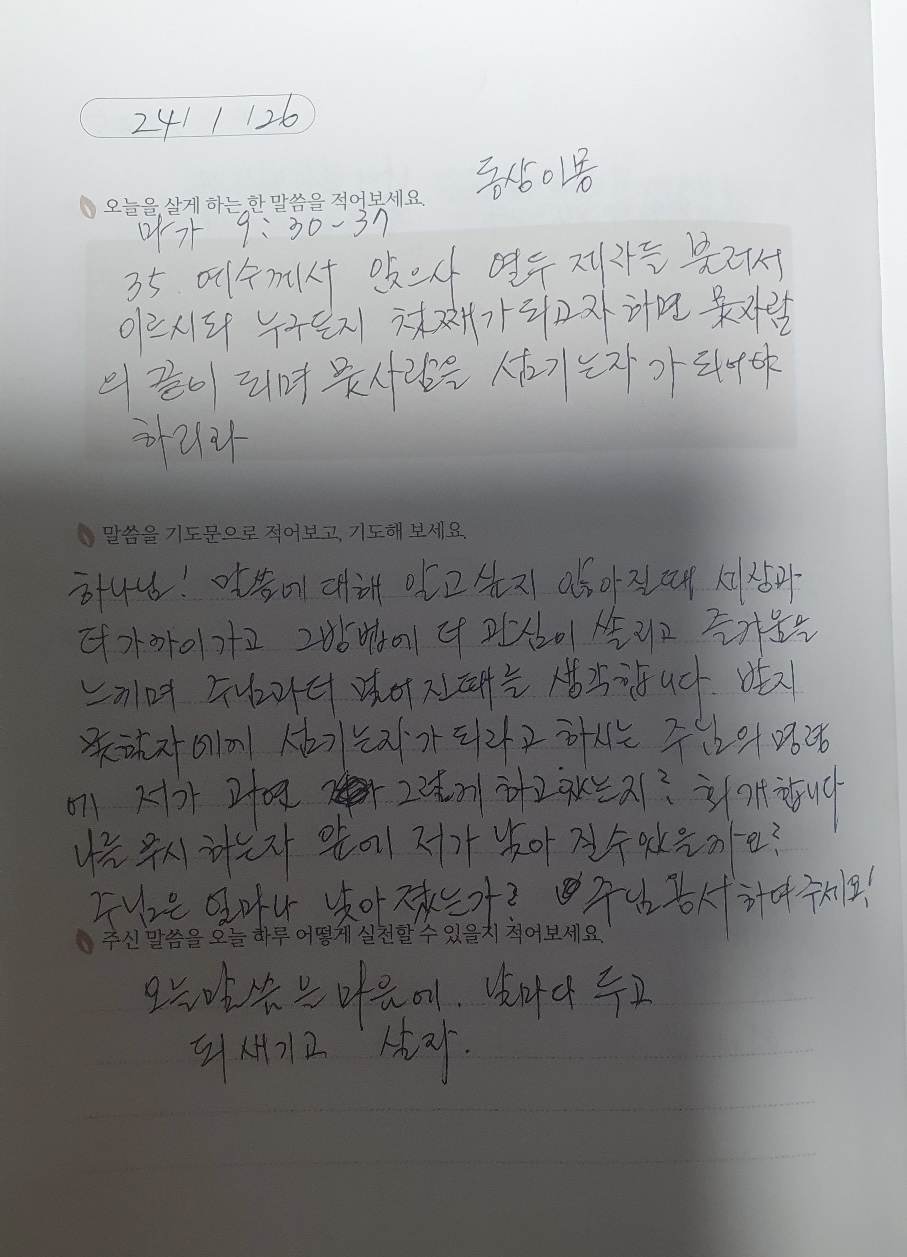 241 / 126
동상이몽
오늘을 살게 하는 한 말씀을 적어보세요.
마가 9:30-37
35. 예수께서 앉으사 열두 제자를 불러서
이르시되 누구든지 첫째가 되고자 하면 뭇사람
의 끝이 되며 뭇사람을 섬기는자 가 되어야
하리라
말씀을 기도문으로 적어보고, 기도해 보세요.
하나님! 말씀에 대해 알고 싶지 않아 질때 세상과
더 가까이 가고 그방법에 더 관심이 쏠리고 즐거움을
느끼며 주님과 더 멀어 진때를 생각합니다. 받지
못할자 에게 섬기는자가 되라고 하시는 주님의 명령
에 저가 과연 그렇게 하고 있는지? 회개합니다
나를 무시 하는자 앞에 저가 낮아 질수 있을까요?
주님은 얼마나 낮아 졌는가? 주님 용서 하여 주세요!
주신 말씀을 오늘 하루 어떻게 실천할 수 있을지 적어보세요.
오늘 말씀 는 마음에. 날마다 두고
되새기고 살자.